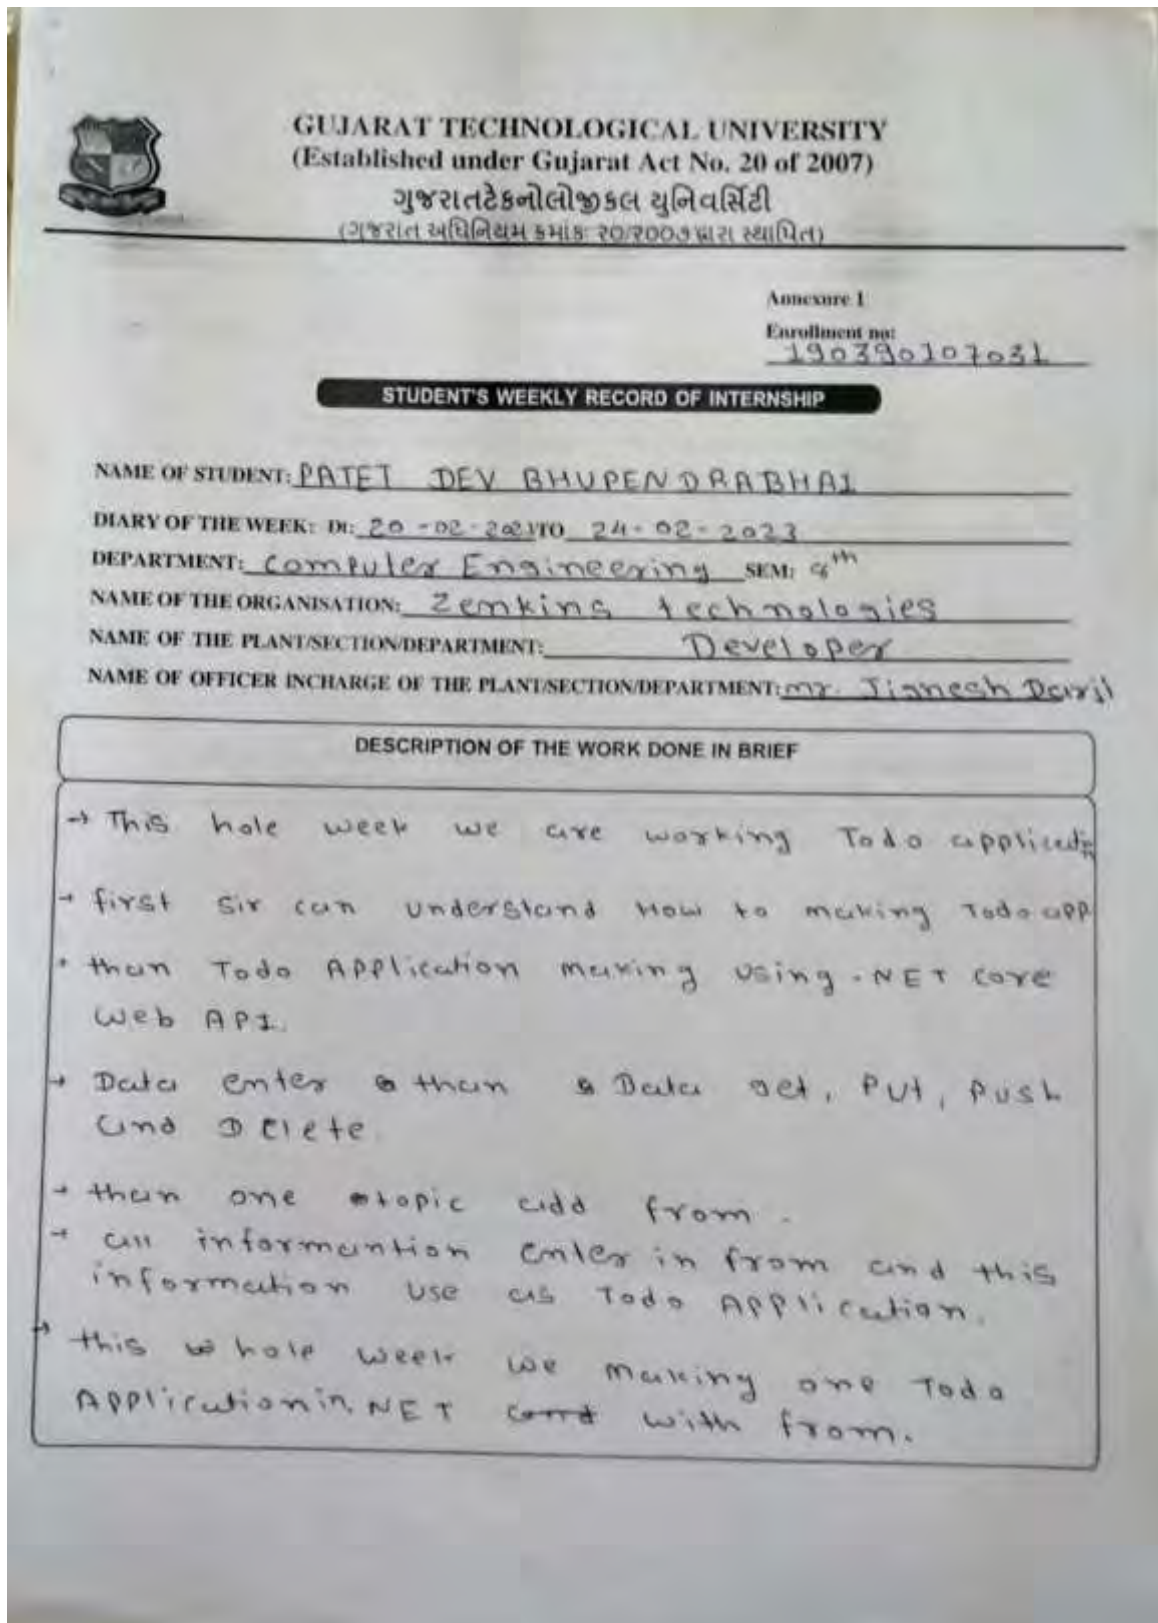 GUJARAT TECHNOLOGICAL UNIVERSITY
(Established under Gujarat Act No. 20 of 2007)
ગુજરાતટેકનોલોજીકલ યુનિવર્સિટી
(ગુજરાત અધિનિયમ ક્રમાંક: ૨૦/૨૦૦૭ દ્વારા સ્થાપિત)
Annexure 1
Enrollment no:
190390107031
STUDENT'S WEEKLY RECORD OF INTERNSHIP
NAME OF STUDENT: PATET DEV BHUPENDRABHAI
DIARY OF THE WEEK: Dt: 20-02-2023 TO 24-02-2023
DEPARTMENT: Computer Engineering SEM: 8th
NAME OF THE ORGANISATION: Zemking technologies
NAME OF THE PLANT/SECTION/DEPARTMENT: Developer
NAME OF OFFICER INCHARGE OF THE PLANT/SECTION/DEPARTMENT: mr. Jignesh
DESCRIPTION OF THE WORK DONE IN BRIEF
→ This hole week we are working Todo application
→ first sir can understand How to making Todo app
• than Todo Application making using .NET Core
Web API.
→ Data enter than Data get, Put, Push
and Delete.
→ than one topic add from.
→ all informantion enter in from and this
information use as Todo Application.
→ this whole week we making one Todo
Application in .NET with from.